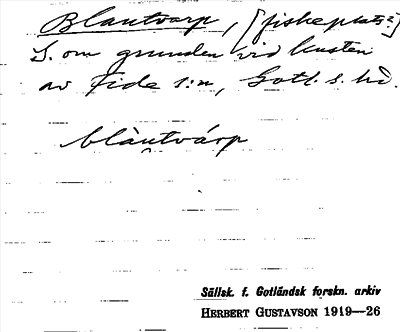 Blautvarp, [fiskeplats?]
S. om grunden vid kusten
av Fide s:n, Gotl. s. hd.
blàutvárp
Sällsk. f. Gotländsk forskn. arkiv
HERBERT GUSTAVSON 1919—26